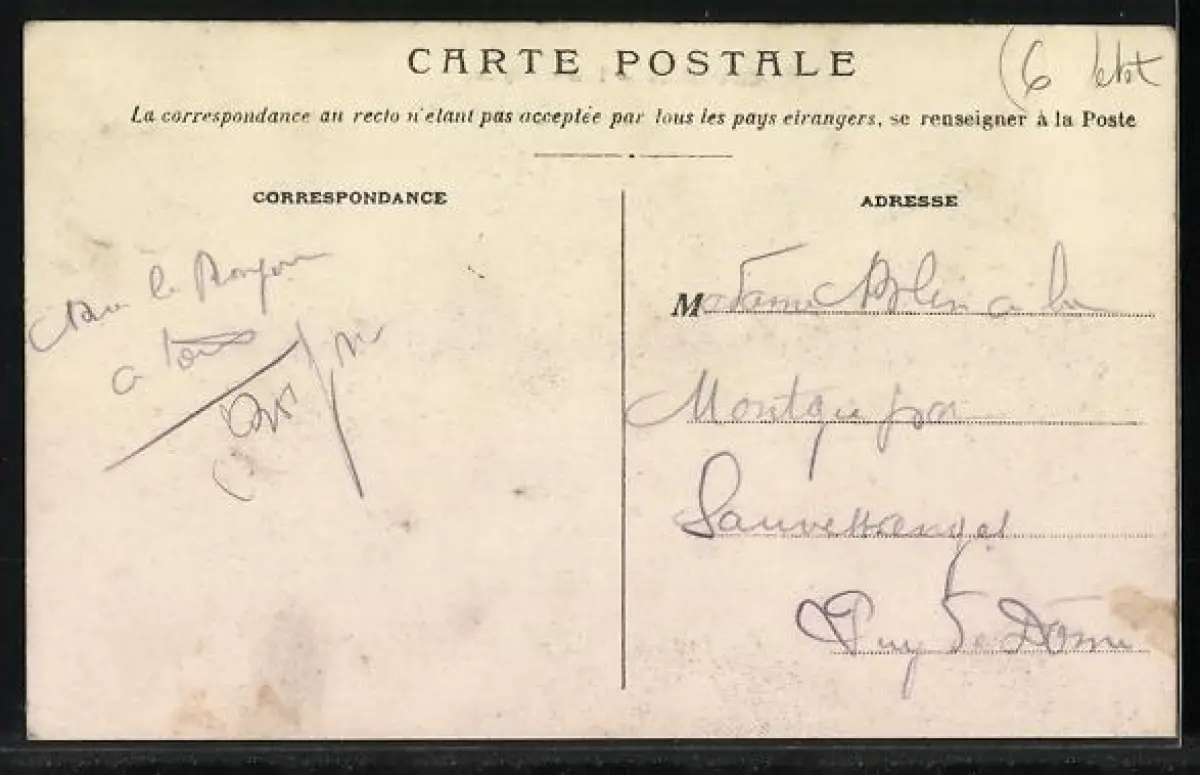 CARTE POSTALE
La correspondance au recto n'étant pas acceptée par tous les pays etrangers, se renseigner à la Poste
CORRESPONDANCE
ADRESSE
le Bonjour
a tous
Madame Blin a la
par
Sauvessanges
Puy de Dome